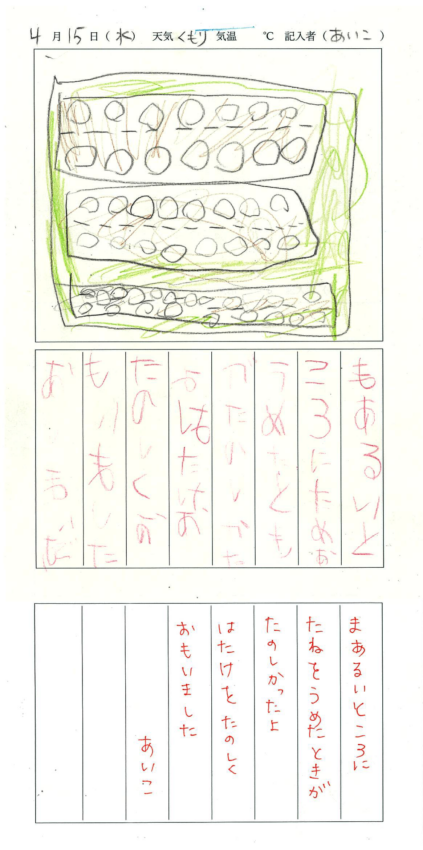 4月15日(水) 天気くもり 気温 ℃ 記入者(あいこ)
もあるいと
ころにためお
うめたとも
はたけお
たのしく
まあるいところに
たねをうめたときが
たのしかったよ
はたけをたのしく
おもいました
あいこ